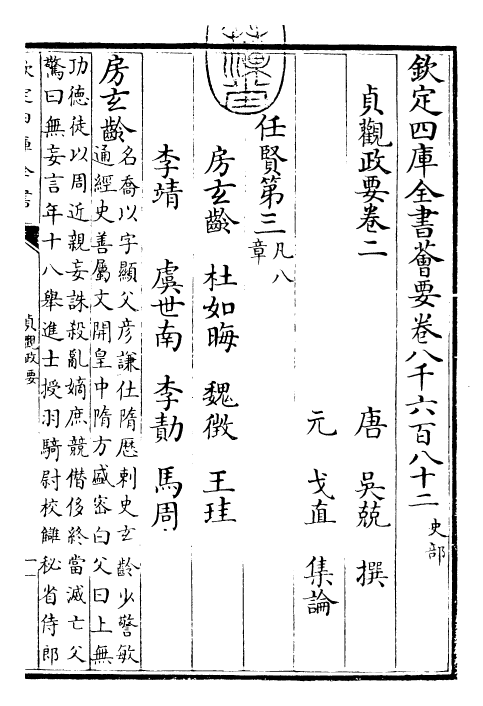 欽定四庫全書薈要卷八千六百八十二 史部
貞觀政要卷二
唐 吳兢 撰
元 戈直 集論
任賢第三 凡八章
房玄齡 杜如晦 魏徴 王珪
李靖 虞世南 李勣 馬周
房玄齡 名喬以字顯父彦謙仕隋歴刺史玄齡少警敏
通經史善屬文開皇中隋方盛密白父曰上無
功德徒以周近親妄誅殺亂嫡庶競僭侈終當滅亡父
驚曰無妄言年十八舉進士授羽騎尉校讎秘省侍郎
欽定四庫全書
貞觀政要
一